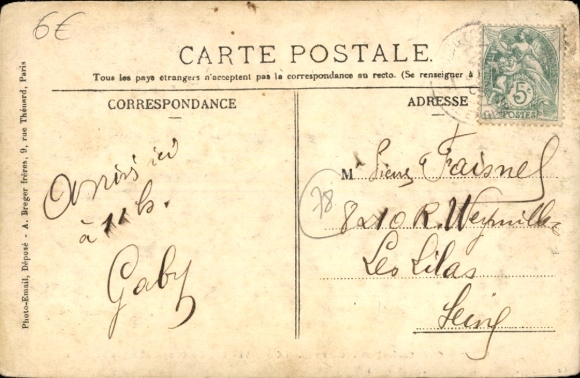 6€
CARTE POSTALE.
Tous les pays étrangers n'acceptent pas la correspondance au recto. (Se renseigner à
CORRESPONDANCE
ADRESSE
5c
POSTES
Arrivés ici
à 11 h.
Gaby
M Faisnel
78
8 10 R.
Les Lilas
Seine
Photo-Email, Déposé - A. Breger frères, 9, rue Thénard, Paris